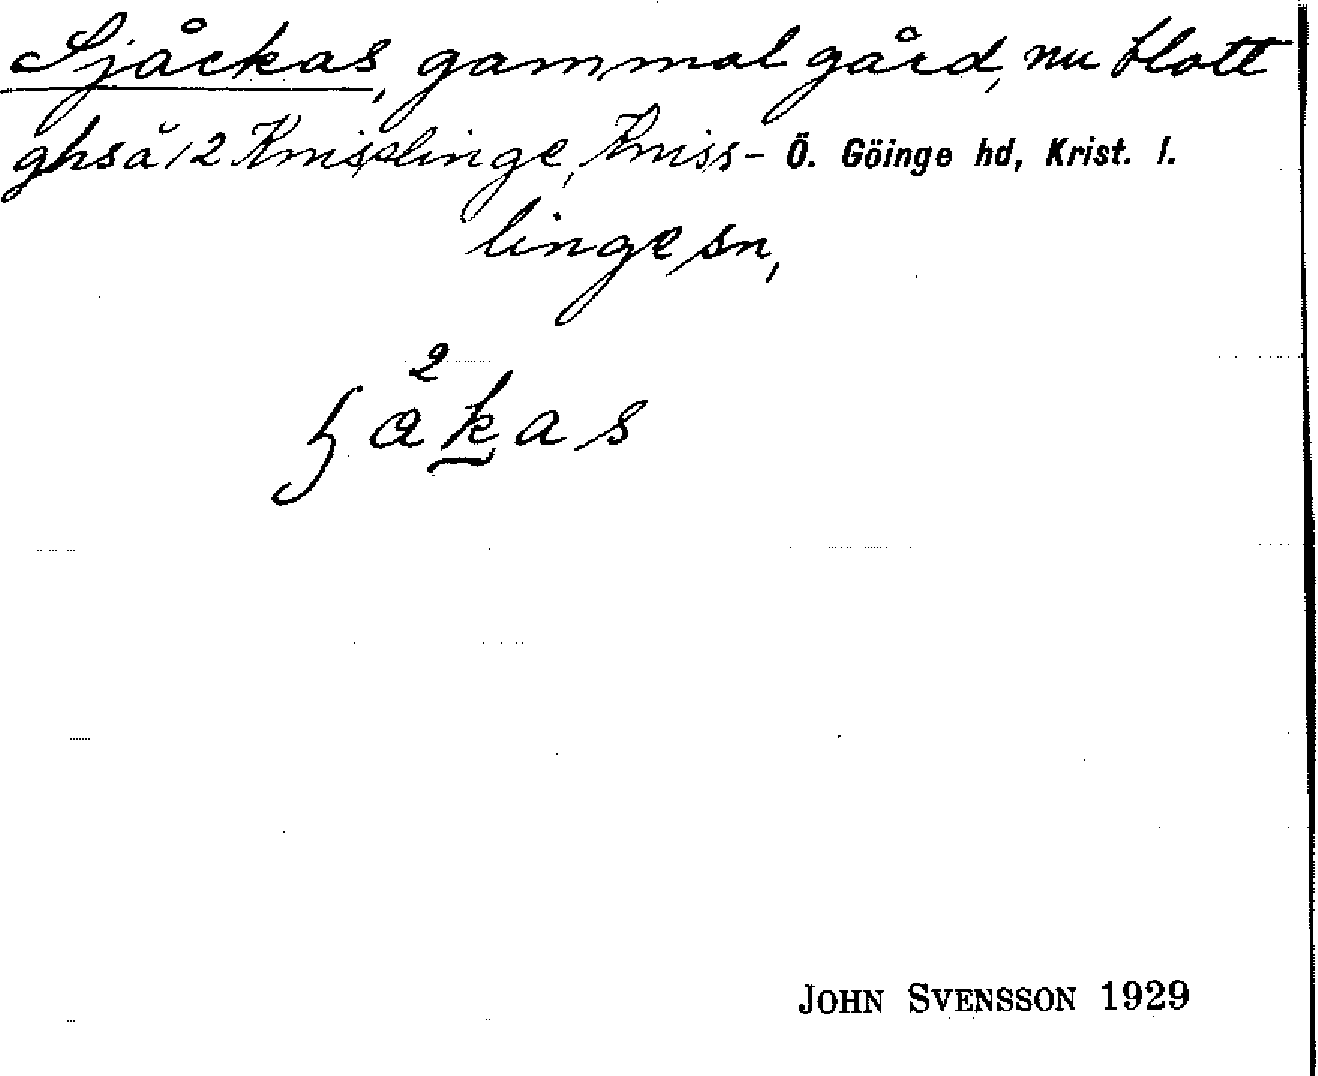 Sjåckas, gammal gård, nu blott
ghså 12 Knisslinge, Kniss- Ö. Göinge hd, Krist. l.
linge sn,
2
kas
JOHN SVENSSON 1929